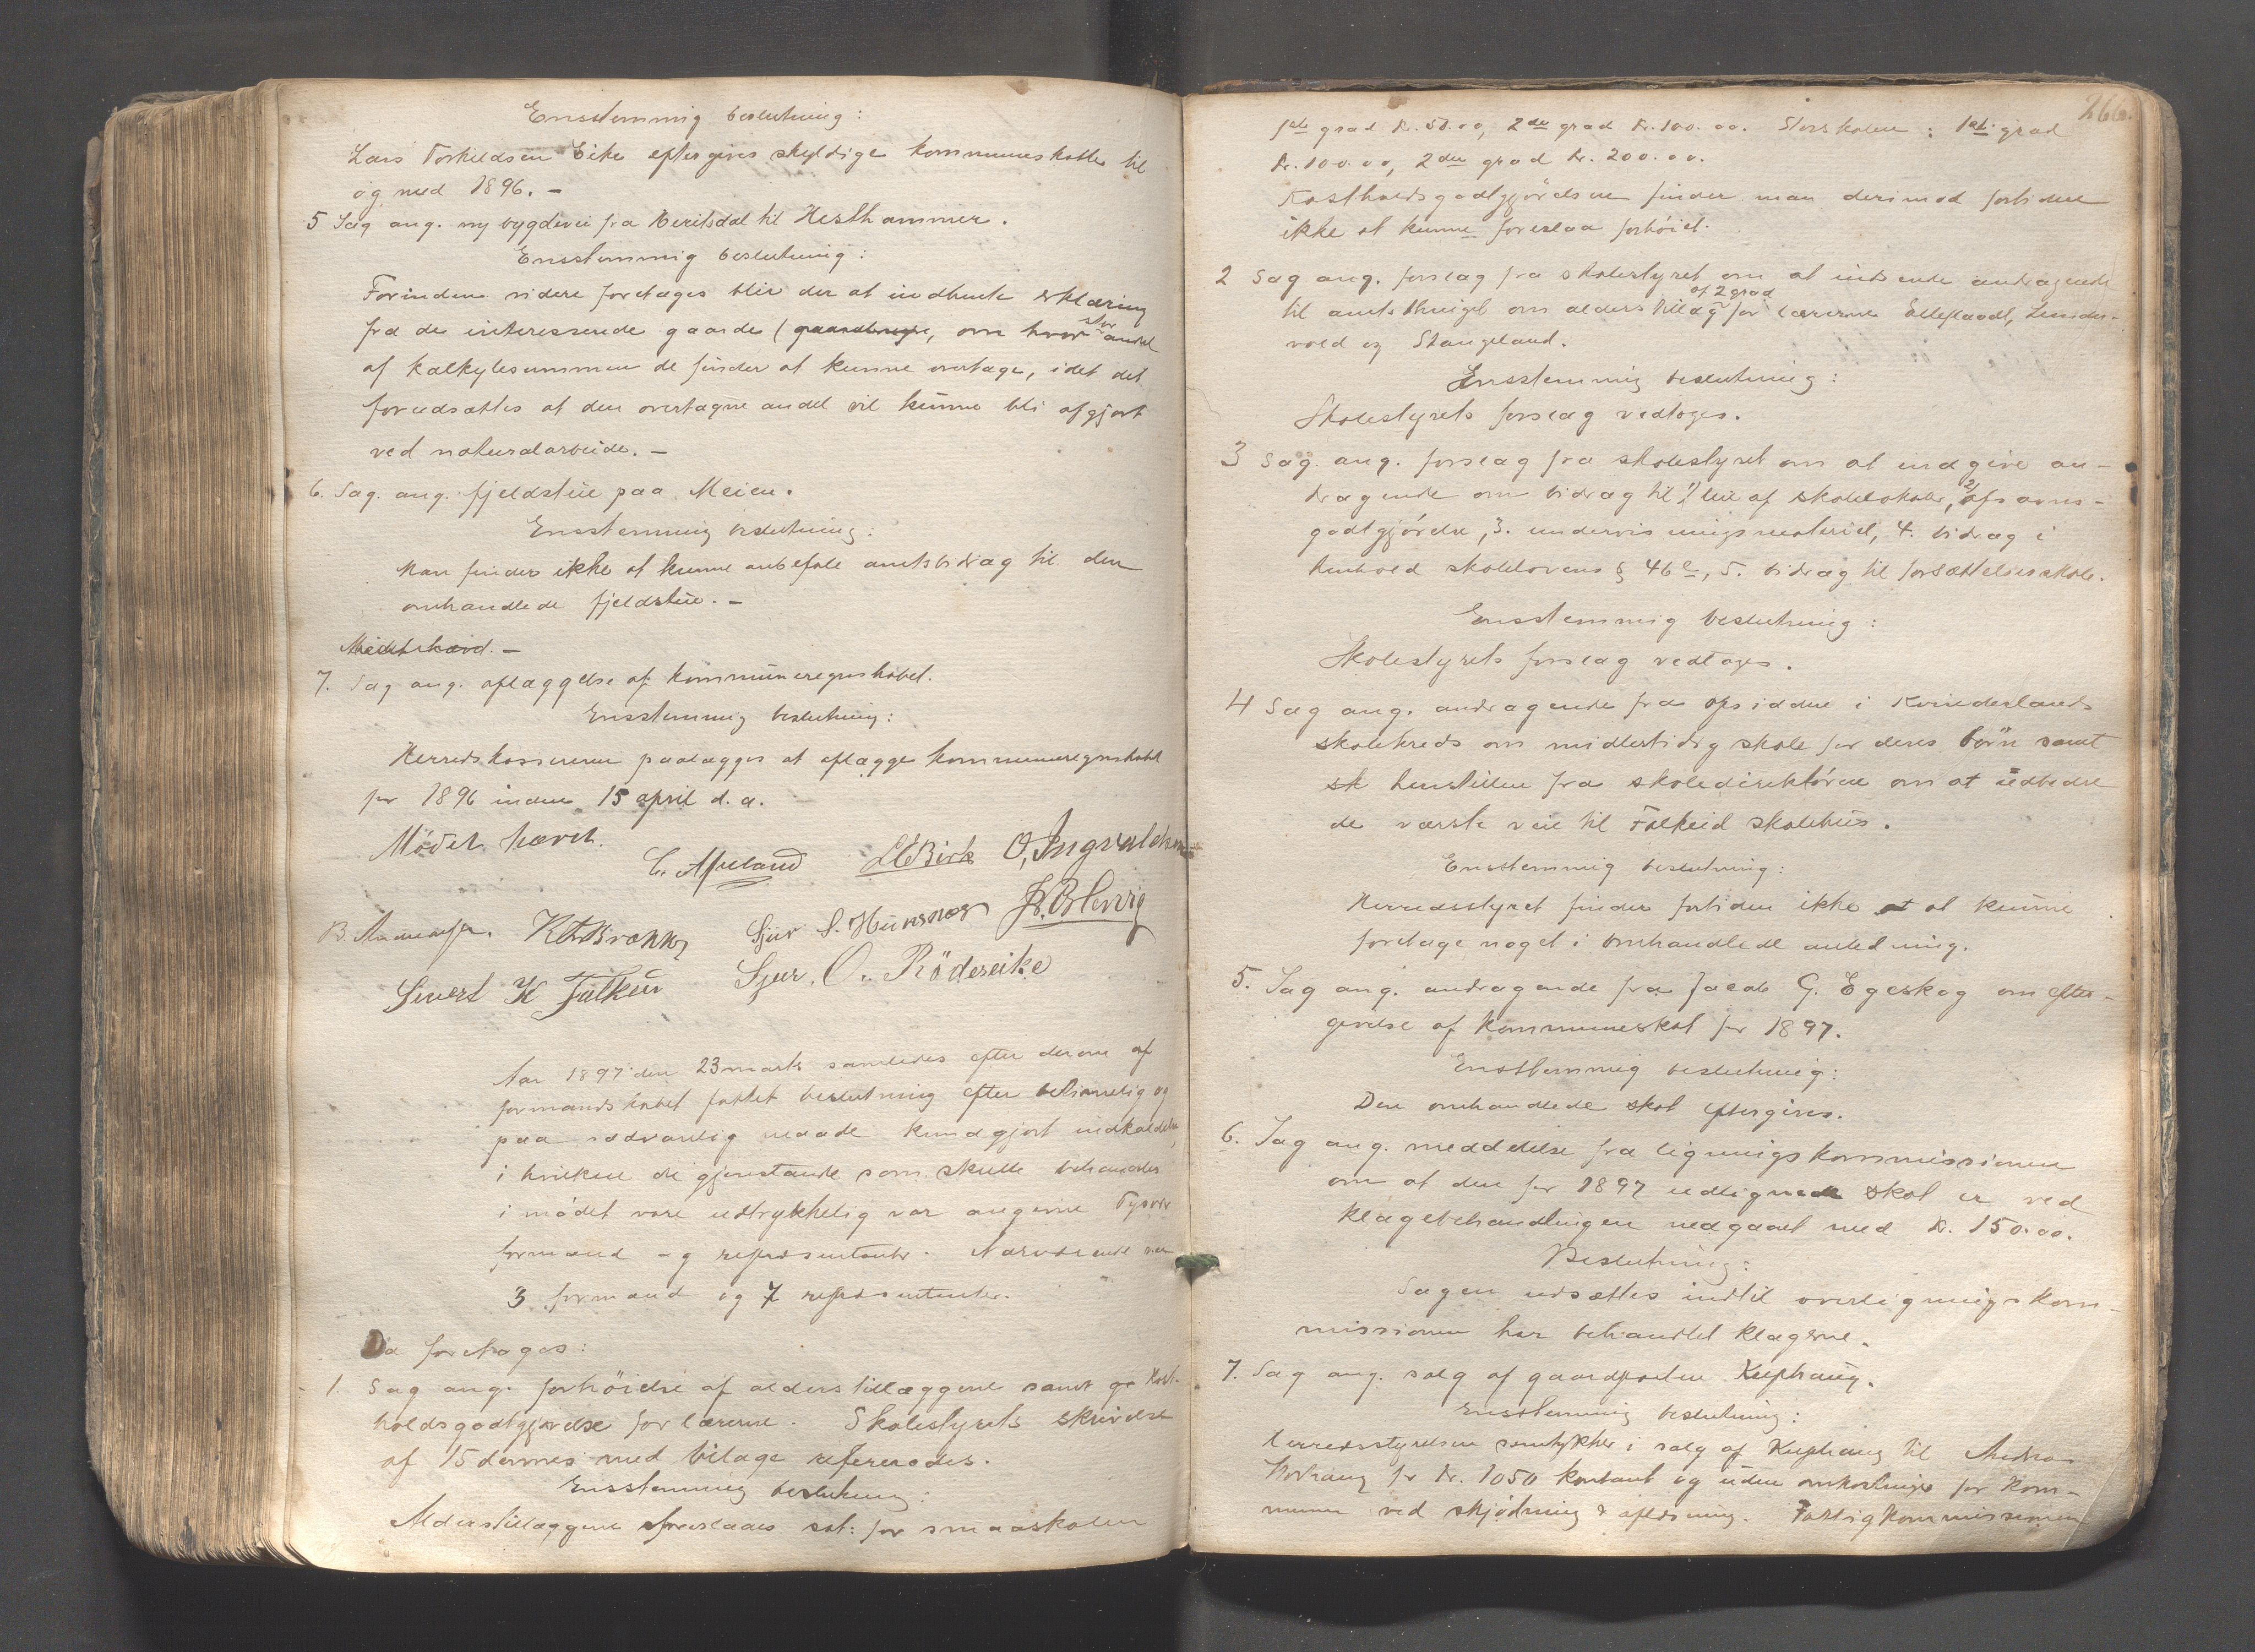 Ensstemmig beslutning:
Lars Torkildsen Eike eftergives skyldige kommuneskatter til
og med 1896. –
5 Sag ang. ny bygdevei fra til Hesthammer.
Ensstemmig beslutning:
Forinden videre foretages blir der at indhente erklæring
fra de interesserede gaarde (, om hvor stor andel
af kalkylesummen de finder at kunne overtage, idet det
forudsættes at den overtagne andel vil kunne bli afgjort
ved naturalarbeide. –
6. Sag. ang. fjeldstue paa Meien.
Ensstemmig beslutning:
Man finder ikke at kunne anbefale amtsbidrag til den
omhandlede fjeldstue. –
7. Sag ang. aflæggelse af kommuneregnskabet.
Ensstemmig beslutning:
Herredskassereren paalægges at aflægge kommuneregnskabet
for 1896 inden 15 april d. a.
Mødet hævet.
C. Apeland LBirk O, Ingvaldsen
B. K Sjur S. Hunsnæs
Sivert K Falkeid Sjur. O. Rødseike
Aar 1897 den 23 marts samledes efter derom af
formandskabet fattet beslutning efter betimelig og
paa sædvanlig maade kundgjort indkaldelse,
i hvilken de gjenstande som skulde behandles
i mødet vare udtrykkelig var angivne Tysvær
formænd og repræsentanter. Nærværende var
3 formænd og 7 repræsentanter.
Da foretoges:
1. Sag ang. forhöielse af alderstillæggene samt Kost-
holdsgodtgjørelse for lærerne. Skolestyrets skrivelse
af 15 dennes med bilage refereredes.
Ensstemmig beslutning:
Alderstillæggene foreslaaes sat: for smaaskolen
266.
1ste grad Kr. 50.00, 2den grad Kr. 100.00. Storskolen: 1ste grad
Kr. 100.00, 2den grad Kr. 200.00.
Kostholdsgodtgjørelsen finder man derimod fortiden
ikke at kunne foreslaa forhöiet.
2 Sag ang. forslag fra skolestyret om at indsende andragende
til amtsthinget om alderstillæg af 2 grad for lærerne Ellefsavdt,
vold og Stangeland.
Ensstemmig beslutning:
Skolestyrets forslag vedtoges.
3 Sag. ang. forslag fra skolestyret om at indgive an-
dragende om bidrag til 1) leie af skolelokaler, 2) afsavns-
godtgjørelse, 3. undervisningsmateriel, 4. bidrag i
henhold skolelovens § 46 e, 5. bidrag til forsættelsesskole.
Ensstemmig beslutning:
Skolestyrets forslag vedtoges.
4 Sag ang. andragende fra opsiddere i Kvinderlands
skolekreds om midlertidig skole for deres börn samt
sk henstillen fra skoledirektøren om at udbedre
de værste veie til Falkeid skolehus.
Ensstemmig beslutning:
Herredsstyret finder fortiden ikke at kunne
foretage noget i omhandlede anledning.
5. Sag ang. andragende fra Jacob G. Egeskog om efter-
givelse af kommuneskat for 1897.
Ensstemmig beslutning:
Den omhandlede skat eftergives.
6. Sag ang. meddelelse fra ligningskommissionen
om at den for 1897 udlignede skat er ved
klagebehandlingen nedgaaet med Kr. 150.00.
Beslutning:
Sagen udsættes indtil overligningskom-
missionen har behandlet klagerne.
7. Sag ang. salg af gaardparten Kuphaug.
Ensstemmig beslutning:
Herredsstyrelsen samtykker i salg af Kuphaug til Andreas
for Kr. 1050 kontant og uden omkostninger for kom-
munen ved skjödning & aflösning. Fattigkommissionen